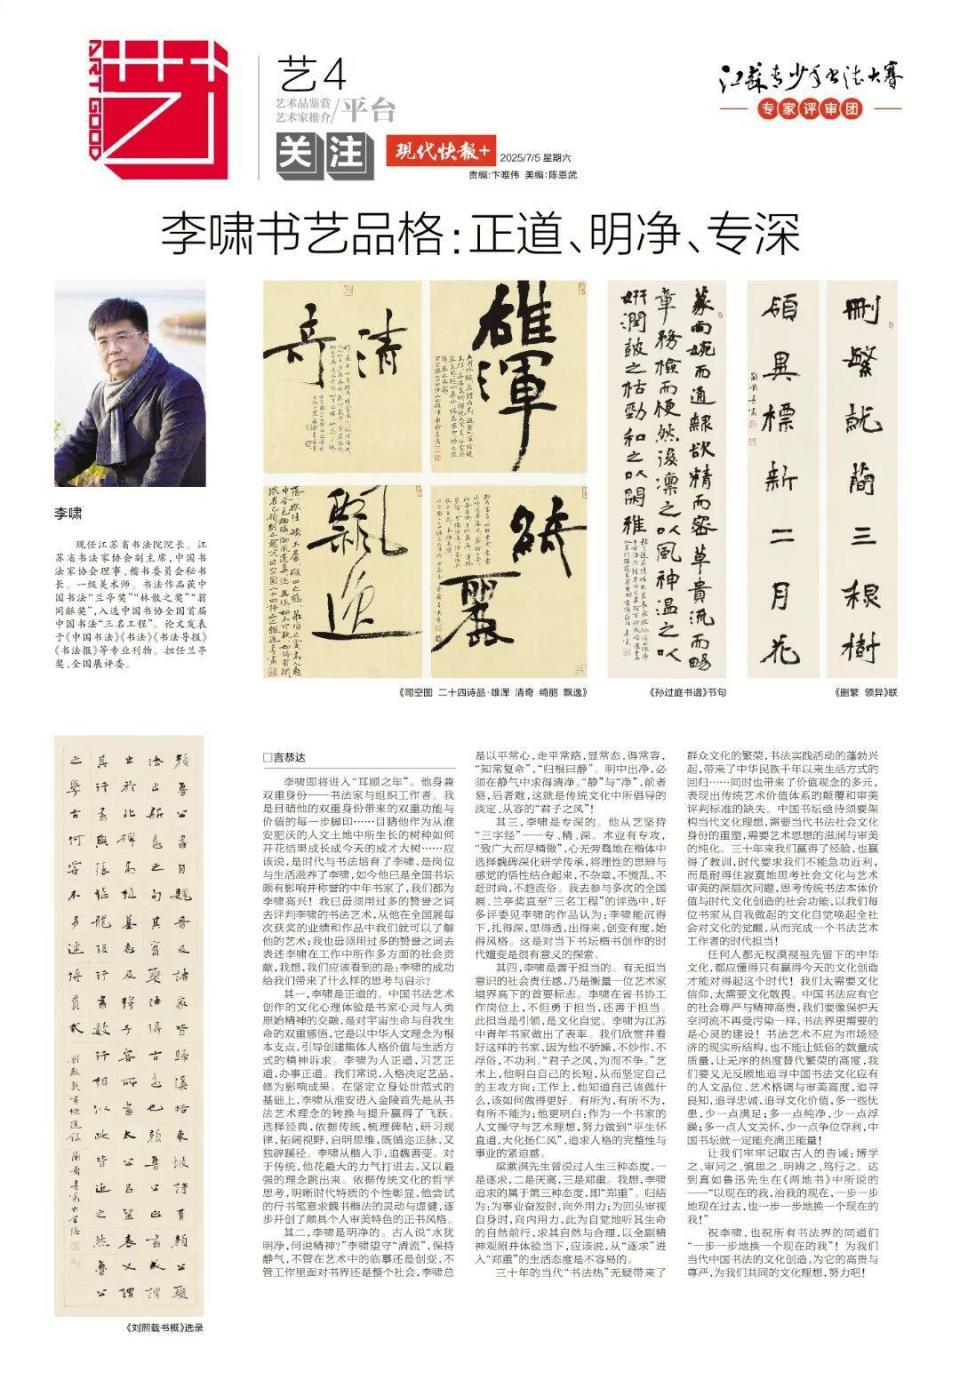 艺
ART GOOD
艺4
艺术品鉴赏
艺术家推介/平台
关注
现代快报+
2025/7/5 星期六
责编:卞唯伟 美编:陈恩武
江苏青少年书法大赛
专家评审团
李啸书艺品格:正道、明净、专深
李啸
现任江苏省书法院院长。江
苏省书法家协会副主席,中国书
法家协会理事、楷书委员会秘书
长。一级美术师。书法作品获中
国书法“兰亭奖”“林散之奖”“翁
同龢奖”,入选中国书协全国首届
中国书法“三名工程”。论文发表
于《中国书法》《书法》《书法导报》
《书法报》等专业刊物。担任兰亭
奖、全国展评委。
清
奇
雄
浑
飘
逸
绮
丽
《司空图 二十四诗品·雄浑 清奇 绮丽 飘逸》
篆尚婉而通隸欲精而密草貴流而暢
章務檢而便然後凜之以風神温之以
妍潤鼓之枯勁和之以閑雅
《孙过庭书谱》节句
刪繁就簡三秋樹
領異標新二月花
《删繁 领异》联
《刘熙载书概》选录
□言恭达
李啸即将进入“耳顺之年”。他身兼
双重身份——书法家与组织工作者。我
是目睹他的双重身份带来的双重功能与
价值的每一步脚印……目睹他作为从淮
安肥沃的人文土地中所生长的树种如何
开花结果成长成今天的成才大树……应
该说,是时代与书法培育了李啸,是岗位
与生活滋养了李啸,如今他已是全国书坛
颇有影响并称誉的中年书家了,我们都为
李啸高兴!我已毋须用过多的赞誉之词
去评判李啸的书法艺术,从他在全国展每
次获奖的业绩和作品中我们就可以了解
他的艺术;我也毋须用过多的赞誉之词去
表述李啸在工作中所作多方面的社会贡
献,我想,我们应该看到的是:李啸的成功
给我们带来了什么样的思考与启示?
其一,李啸是正道的。中国书法艺术
创作的文化心理体验是书家心灵与人类
原始精神的交融,是对宇宙生命与自我生
命的双重感悟,它是以中华人文理念为根
本支点,引导创建集体人格价值与生活方
式的精神诉求。李啸为人正道,习艺正
道,办事正道。我们常说,人格决定艺品,
修为影响成果。在坚定立身处世范式的
基础上,李啸从淮安进入金陵首先是从书
法艺术理念的转换与提升赢得了飞跃。
选择经典,依据传统,梳理碑帖,研习规
律,拓阔视野,启明思维,既循迩正脉,又
独辟蹊径。李啸从楷入手,追魏善变。对
于传统,他花最大的力气打进去,又以最
强的理念跳出来。依据传统文化的哲学
思考,明晰时代特质的个性彰显,他尝试
的行书笔意求魏书楷法的灵动与虚健,逐
步开创了颇具个人审美特色的正书风格。
其二,李啸是明净的。古人说“水犹
明净,何说精神?”李啸望守“清流”,保持
静气,不管在艺术中的临摹还是创变,不
管工作里面对书界还是整个社会,李啸总
是以平常心,走平常路,显常态,得常容,
“知常复命”,“归根曰静”。明中出净,必
须在静气中求得清净。“静”与“净”,前者
易,后者难,这就是传统文化中所倡导的
淡定,从容的“君子之风”!
其三,李啸是专深的。他从艺坚持
“三字经”——专、精、深。术业有专攻,
“致广大而尽精微”,心无旁骛地在楷体中
选择魏碑深化研学传承,将理性的思辨与
感觉的悟性结合起来,不杂章,不慌乱,不
赶时尚,不趋流俗。我去参与多次的全国
展、兰亭奖直至“三名工程”的评选中,好
多评委见李啸的作品认为:李啸能沉得
下,扎得深,思得透,出得来,创变有度,始
得风格。这是对当下书坛楷书创作的时
代嬗变是很有意义的探索。
其四,李啸是善于担当的。有无担当
意识的社会责任感,乃是衡量一位艺术家
境界高下的首要标志。李啸在省书协工
作岗位上,不但勇于担当,还善于担当。
此担当是引领,是文化自觉。李啸为江苏
中青年书家做出了表率。我们欣赏并看
好这样的书家,因为他不骄躁,不炒作,不
浮俗,不功利。“君子之风,为而不争。”艺
术上,他明白自己的长短,从而坚定自己
的主攻方向;工作上,他知道自己该做什
么,该如何做得更好。有所为,有所不为,
有所不能为;他更明白:作为一个书家的
人文操守与艺术理想,努力做到“平生怀
直道,大化扬仁风”,追求人格的完整性与
事业的紧迫感。
梁漱溟先生曾说过人生三种态度,一
是逐求,二是厌离,三是郑重。我想,李啸
追求的属于第三种态度,即“郑重”。归结
为:为事业奋发时,向外用力;为回头审视
自身时,向内用力,此为自觉地听其生命
的自然前行,求其自然与合理,以全副精
神观照并体验当下,应该说,从“逐求”进
入“郑重”的生活态度是不容易的。
三十年的当代“书法热”无疑带来了
群众文化的繁荣,书法实践活动的蓬勃兴
起,带来了中华民族千年以来生活方式的
回归……同时也带来了价值观念的多元,
表现出传统艺术价值体系的颠覆和审美
评判标准的缺失。中国书坛亟待须要架
构当代文化理想,需要当代书法社会文化
身份的重塑,需要艺术思想的滋润与审美
的纯化。三十年来我们赢得了经验,也赢
得了教训,时代要求我们不能急功近利,
而是耐得住寂寞地思考社会文化与艺术
审美的深层次问题,思考传统书法本体价
值与时代文化创造的社会功能,以我们每
位书家从自我做起的文化自觉唤起全社
会对文化的觉醒,从而完成一个书法艺术
工作者的时代担当!
任何人都无权漠视祖先留下的中华
文化,都应懂得只有赢得今天的文化创造
才能对得起这个时代!我们太需要文化
信仰,太需要文化敬畏。中国书法应有它
的社会尊严与精神高贵,我们要像保护天
空河流不再受污染一样,书法界更需要的
是心灵的建设!书法艺术不应为市场经
济的现实所结构,也不能让低俗的数量成
质量,让无序的热度替代繁荣的高度,我
们要义无反顾地追寻中国书法文化应有
的人文品位、艺术格调与审美高度,追寻
良知,追寻忠诚,追寻文化价值,多一些忧
患,少一点满足;多一点纯净,少一点浮
躁;多一点人文关怀,少一点争位夺利,中
国书坛就一定能充满正能量!
让我们牢牢记取古人的告诫:博学
之、审问之、慎思之、明辨之、笃行之。达
到真如鲁迅先生在《两地书》中所说的
——“以现在的我,冶我的现在,一步一步
地现在过去,也一步一步地换一个现在的
我!”
祝李啸,也祝所有书法界的同道们
“一步一步地换一个现在的我”!为我们
当代中国书法的文化创造,为它的高贵与
尊严,为我们共同的文化理想,努力吧!